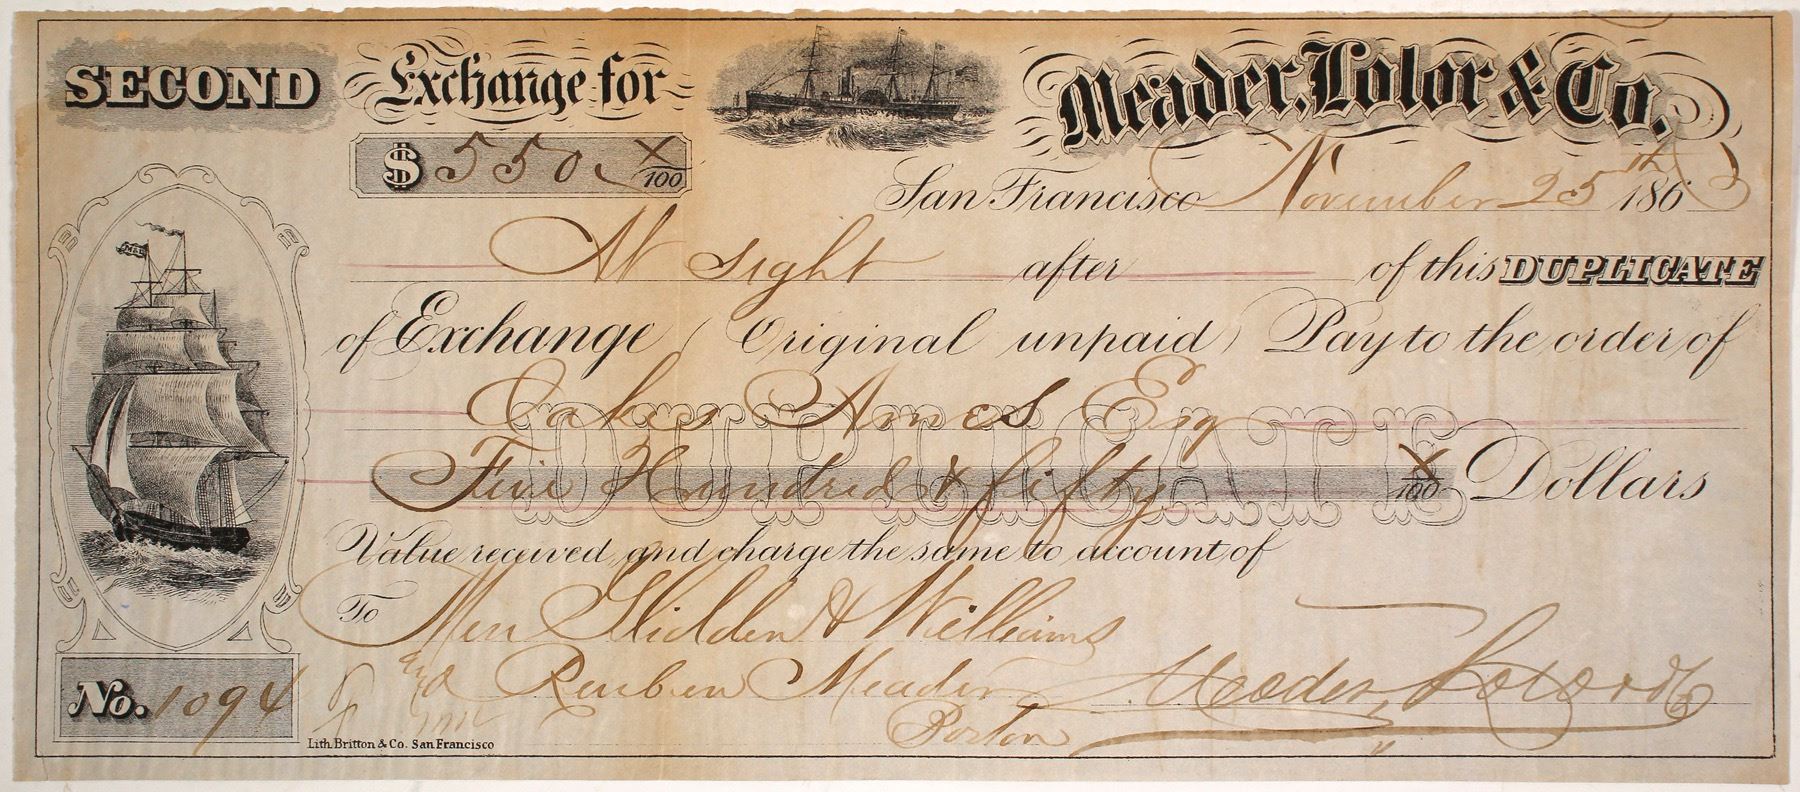 SECOND Exchange for Meader, Lolor & Co.
$ 550 X/100
San Francisco November 25th 1863
At sight after of this DUPLICATE
of Exchange (Original unpaid) Pay to the order of
Oakes Ames Esq
DUPLICATE
Five Hundred & fifty X/100 Dollars
Value received, and charge the same to account of
To Glidden & Williams
and Reuben Meader Meader, Lolor & Co
Boston
No. 1094
Lith. Britton & Co. San Francisco